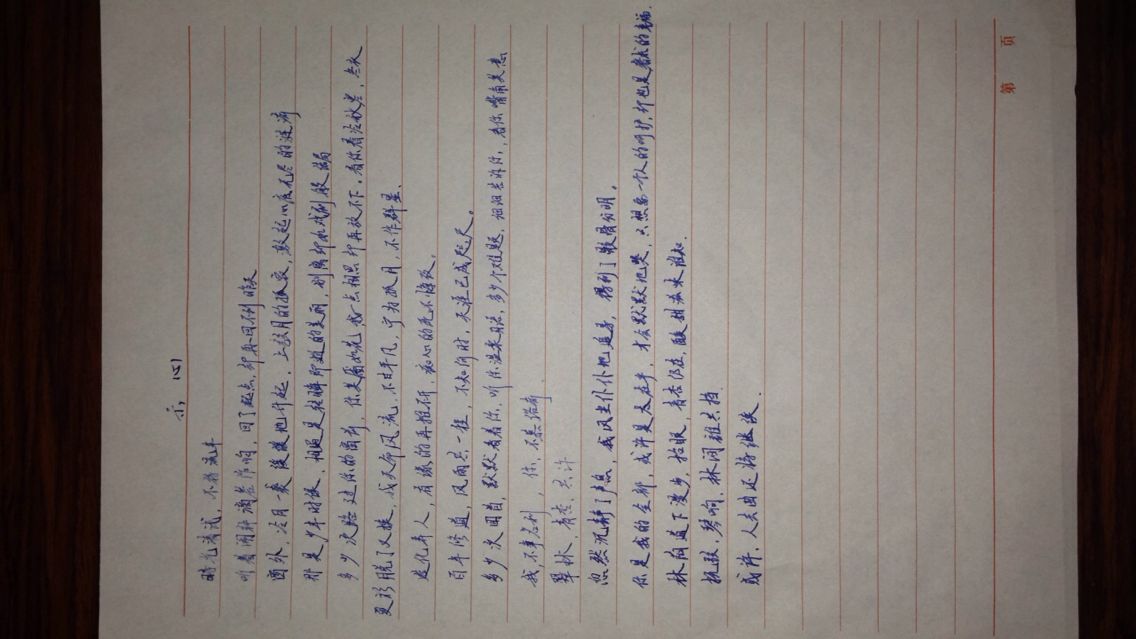 示心
時光清浅，不待流年
听着闹钟滴答作响，回了起点，却再回不到昨天
窗外，冷月一裹 缓缓地升起，上弦月的孤寂，激起心底无尽的涟漪
那是少年时候，相遇是转瞬即逝的美丽，别离却如戏剧般结局
多少次路过你的窗前，你笑靥如花 我一点相思却再放不下，看你看淡秋寒，冬衣
更衫脱了又换，我天命风流，不甘平凡，宁为孤月，不作群星.
造化弄人，有缘的再推研，痴心的死不悔改。
百年修道，风雨共一程，不知何时，天涯已成咫尺。
多少次回首，默默看着你，听你温柔，多少个难题，细细告诉你，看你嘴角笑意
我，不争名利，你，不慕
翠林、青杏、共许
忽然沉静了声息，我风尘仆仆地追寻，得到了骰骨分明。
你是我的全部，或许是太在乎，才会默默地哭，只想要一个人的呵护，却也是奢求的幸福.
林荫道下漫步，抬眼，青杏仍在，酸甜滋味谁知.
抚弦，琴响，林间谁共拍.
或许，人去曲还将继续.
第 页